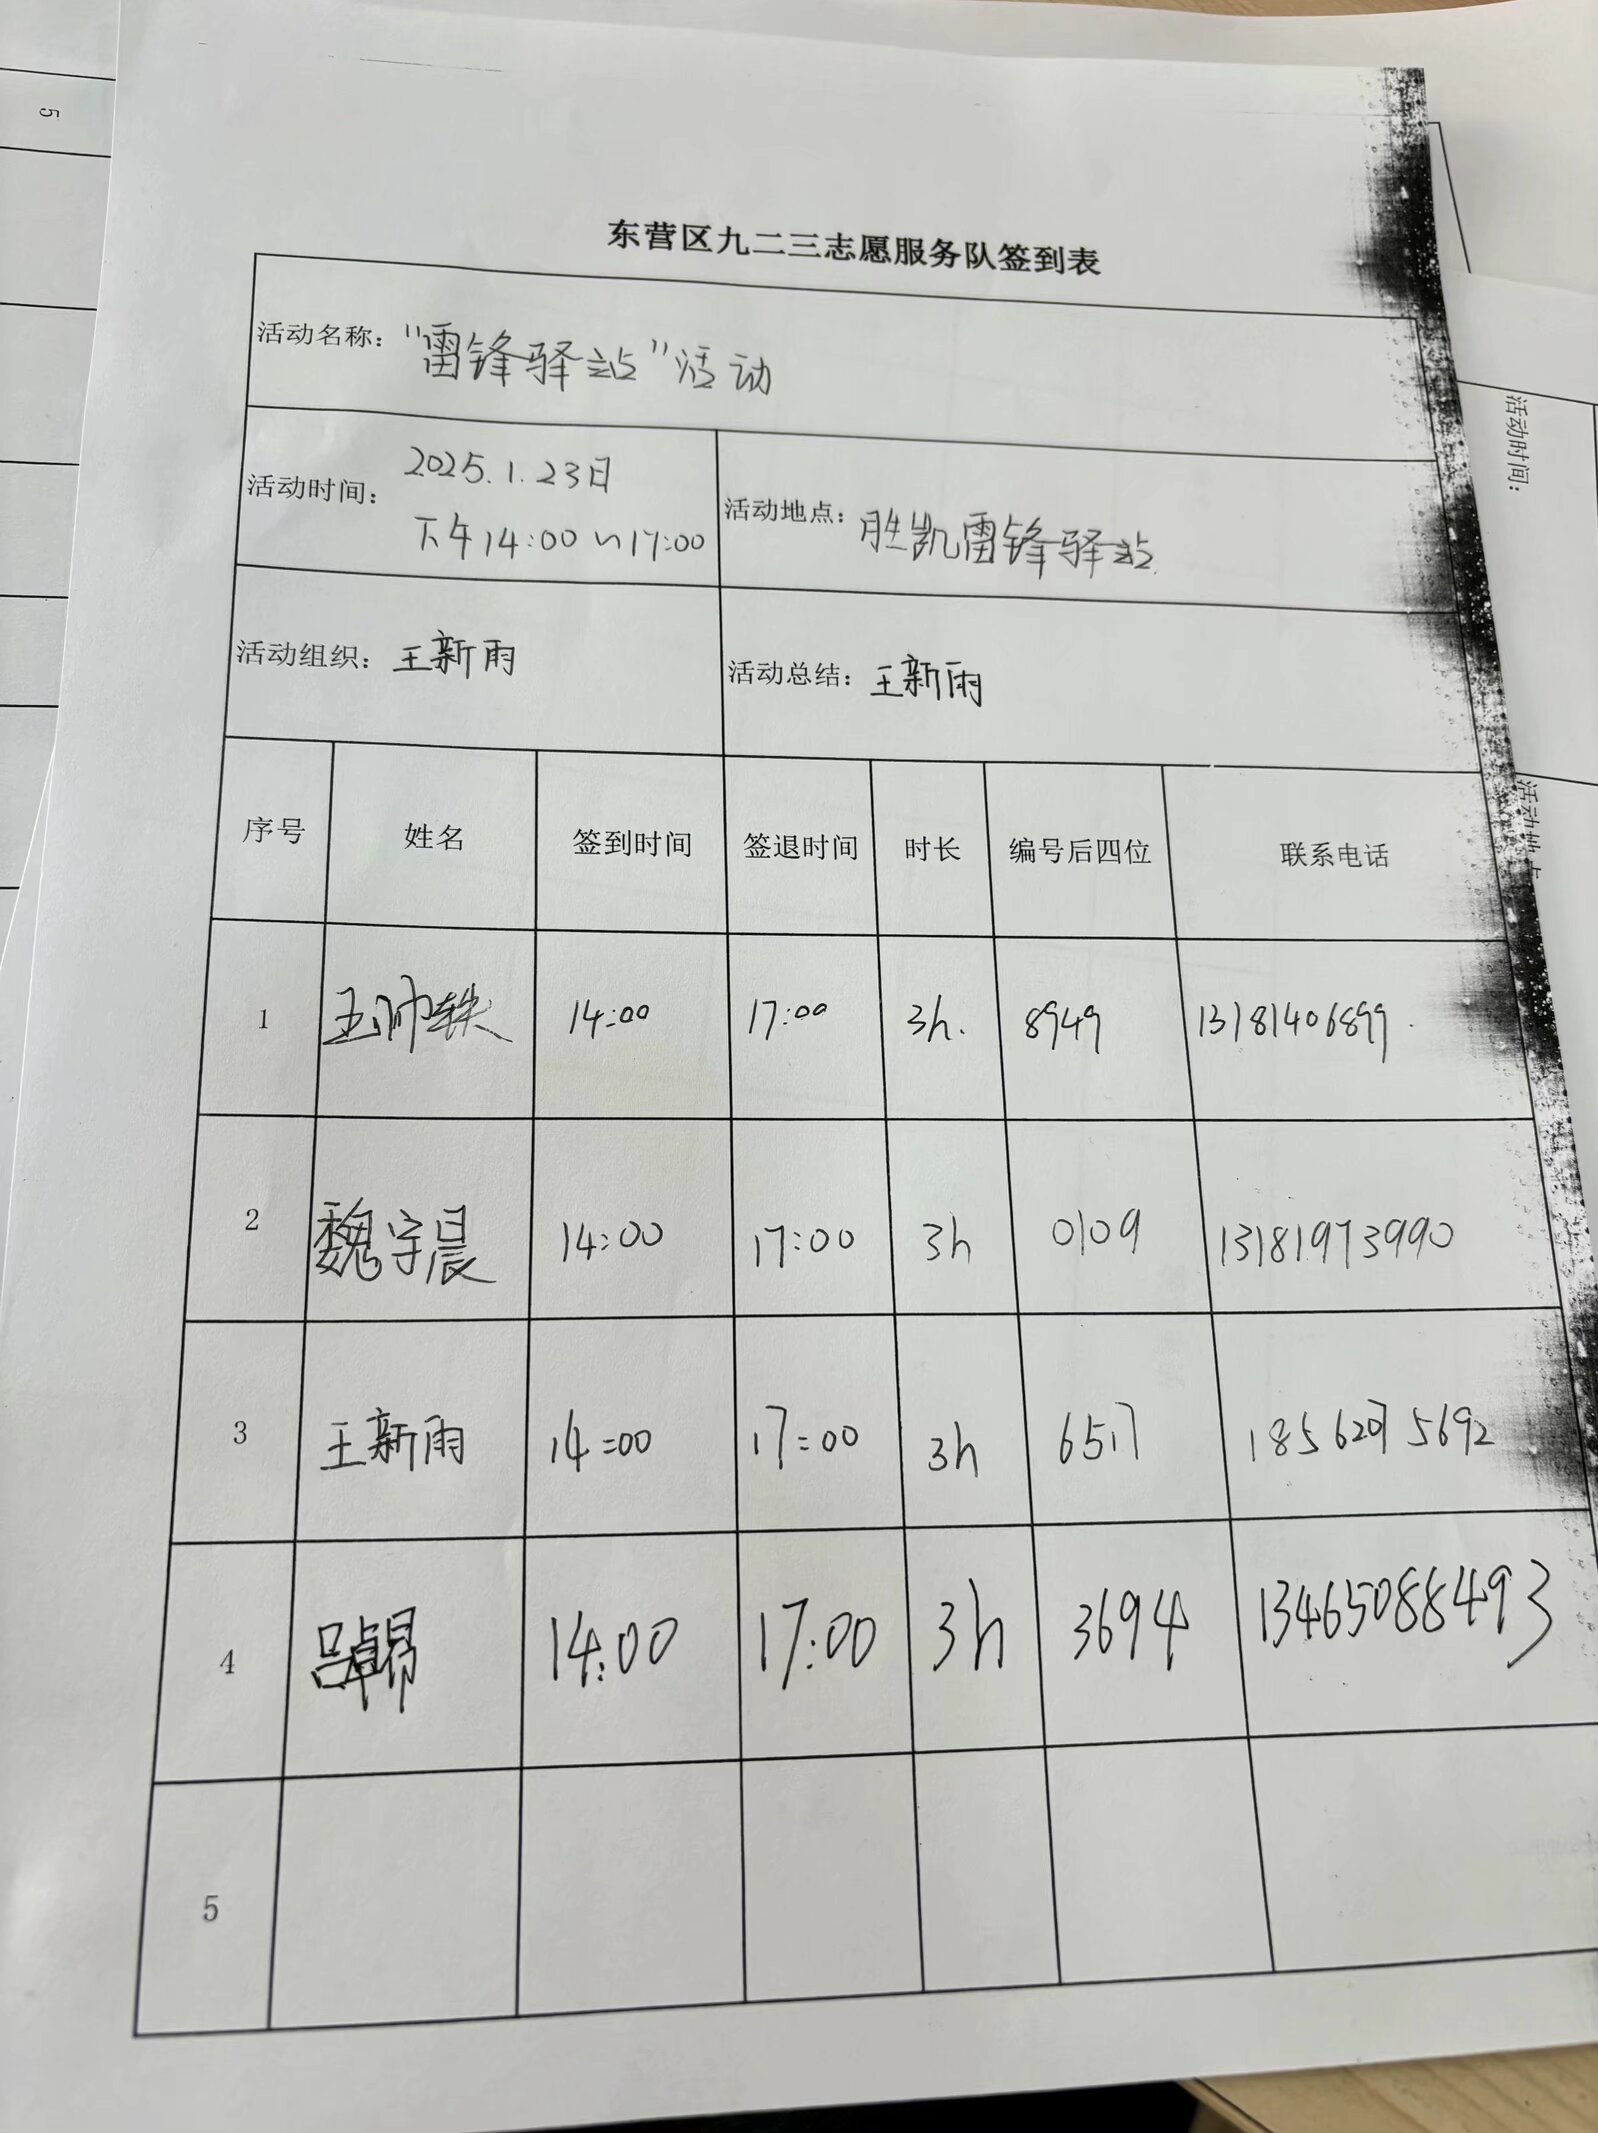 5
东营区九二三志愿服务队签到表
活动名称：“雷锋驿站”活动
活动时间：2025.1.23日
下午14:00~17:00
活动地点：胜凯雷锋驿站
活动组织：王新雨
活动总结：王新雨
序号 姓名 签到时间 签退时间 时长 编号后四位 联系电话
1 王帅轶 14:00 17:00 3h. 8949 13181406899
2 魏宇晨 14:00 17:00 3h 0109 13181973990
3 王新雨 14:00 17:00 3h 6517
4 吕卓昂 14:00 17:00 3h 3694 13465088493
5
活动时间：